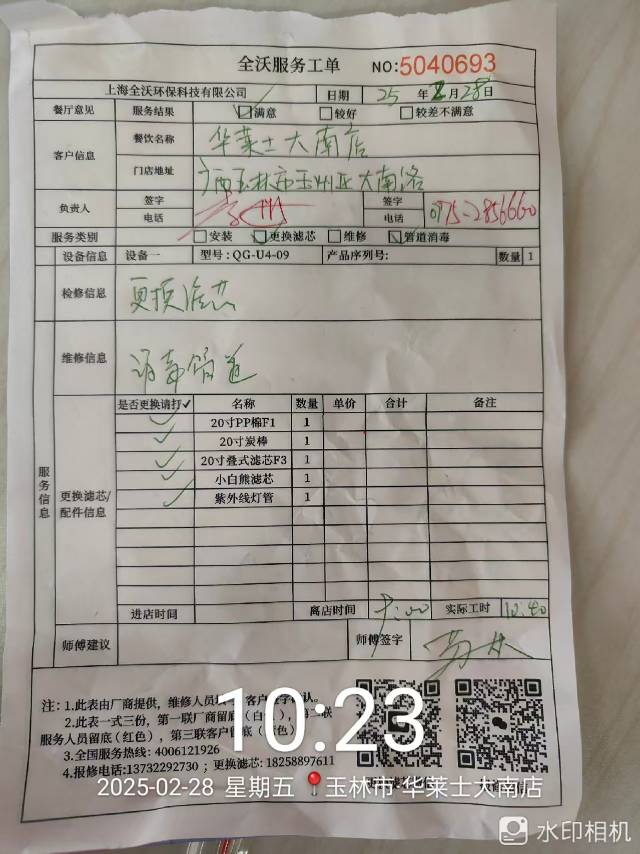 全沃服务工单 NO:5040693
上海全沃环保科技有限公司 日期 25 年 2 月 28 日
餐厅意见 服务结果 满意 较好 较差不满意
客户信息 餐饮名称 华莱士大南店
门店地址 广西玉林市玉州区大南路
负责人 签字 签字
电话 电话 0775-2856660
服务类别 安装 更换滤芯 维修 管道消毒
设备信息 设备一 型号:QG-U4-09 产品序列号: 数量 1
检修信息 更换滤芯
维修信息 消毒管道
服务信息
更换滤芯/配件信息
是否更换请打✓ 名称 数量 单价 合计 备注
✓ 20寸PP棉F1 1
✓ 20寸炭棒 1
✓ 20寸叠式滤芯F3 1
✓ 小白熊滤芯 1
✓ 紫外线灯管 1
进店时间 离店时间 9:00 实际工时 10:40
师傅建议 师傅签字
注: 1.此表由厂商提供，维修人员 客户 认。
2.此表一式三份，第一联厂商留底(白 )， 二联
服务人员留底(红色)，第三联客户留底( 色)
3.全国服务热线: 4006121926
4.报修电话:13732292730 ; 更换滤芯: 18258897611
10:23
2025-02-28 星期五 玉林市·华莱士大南店
水印相机